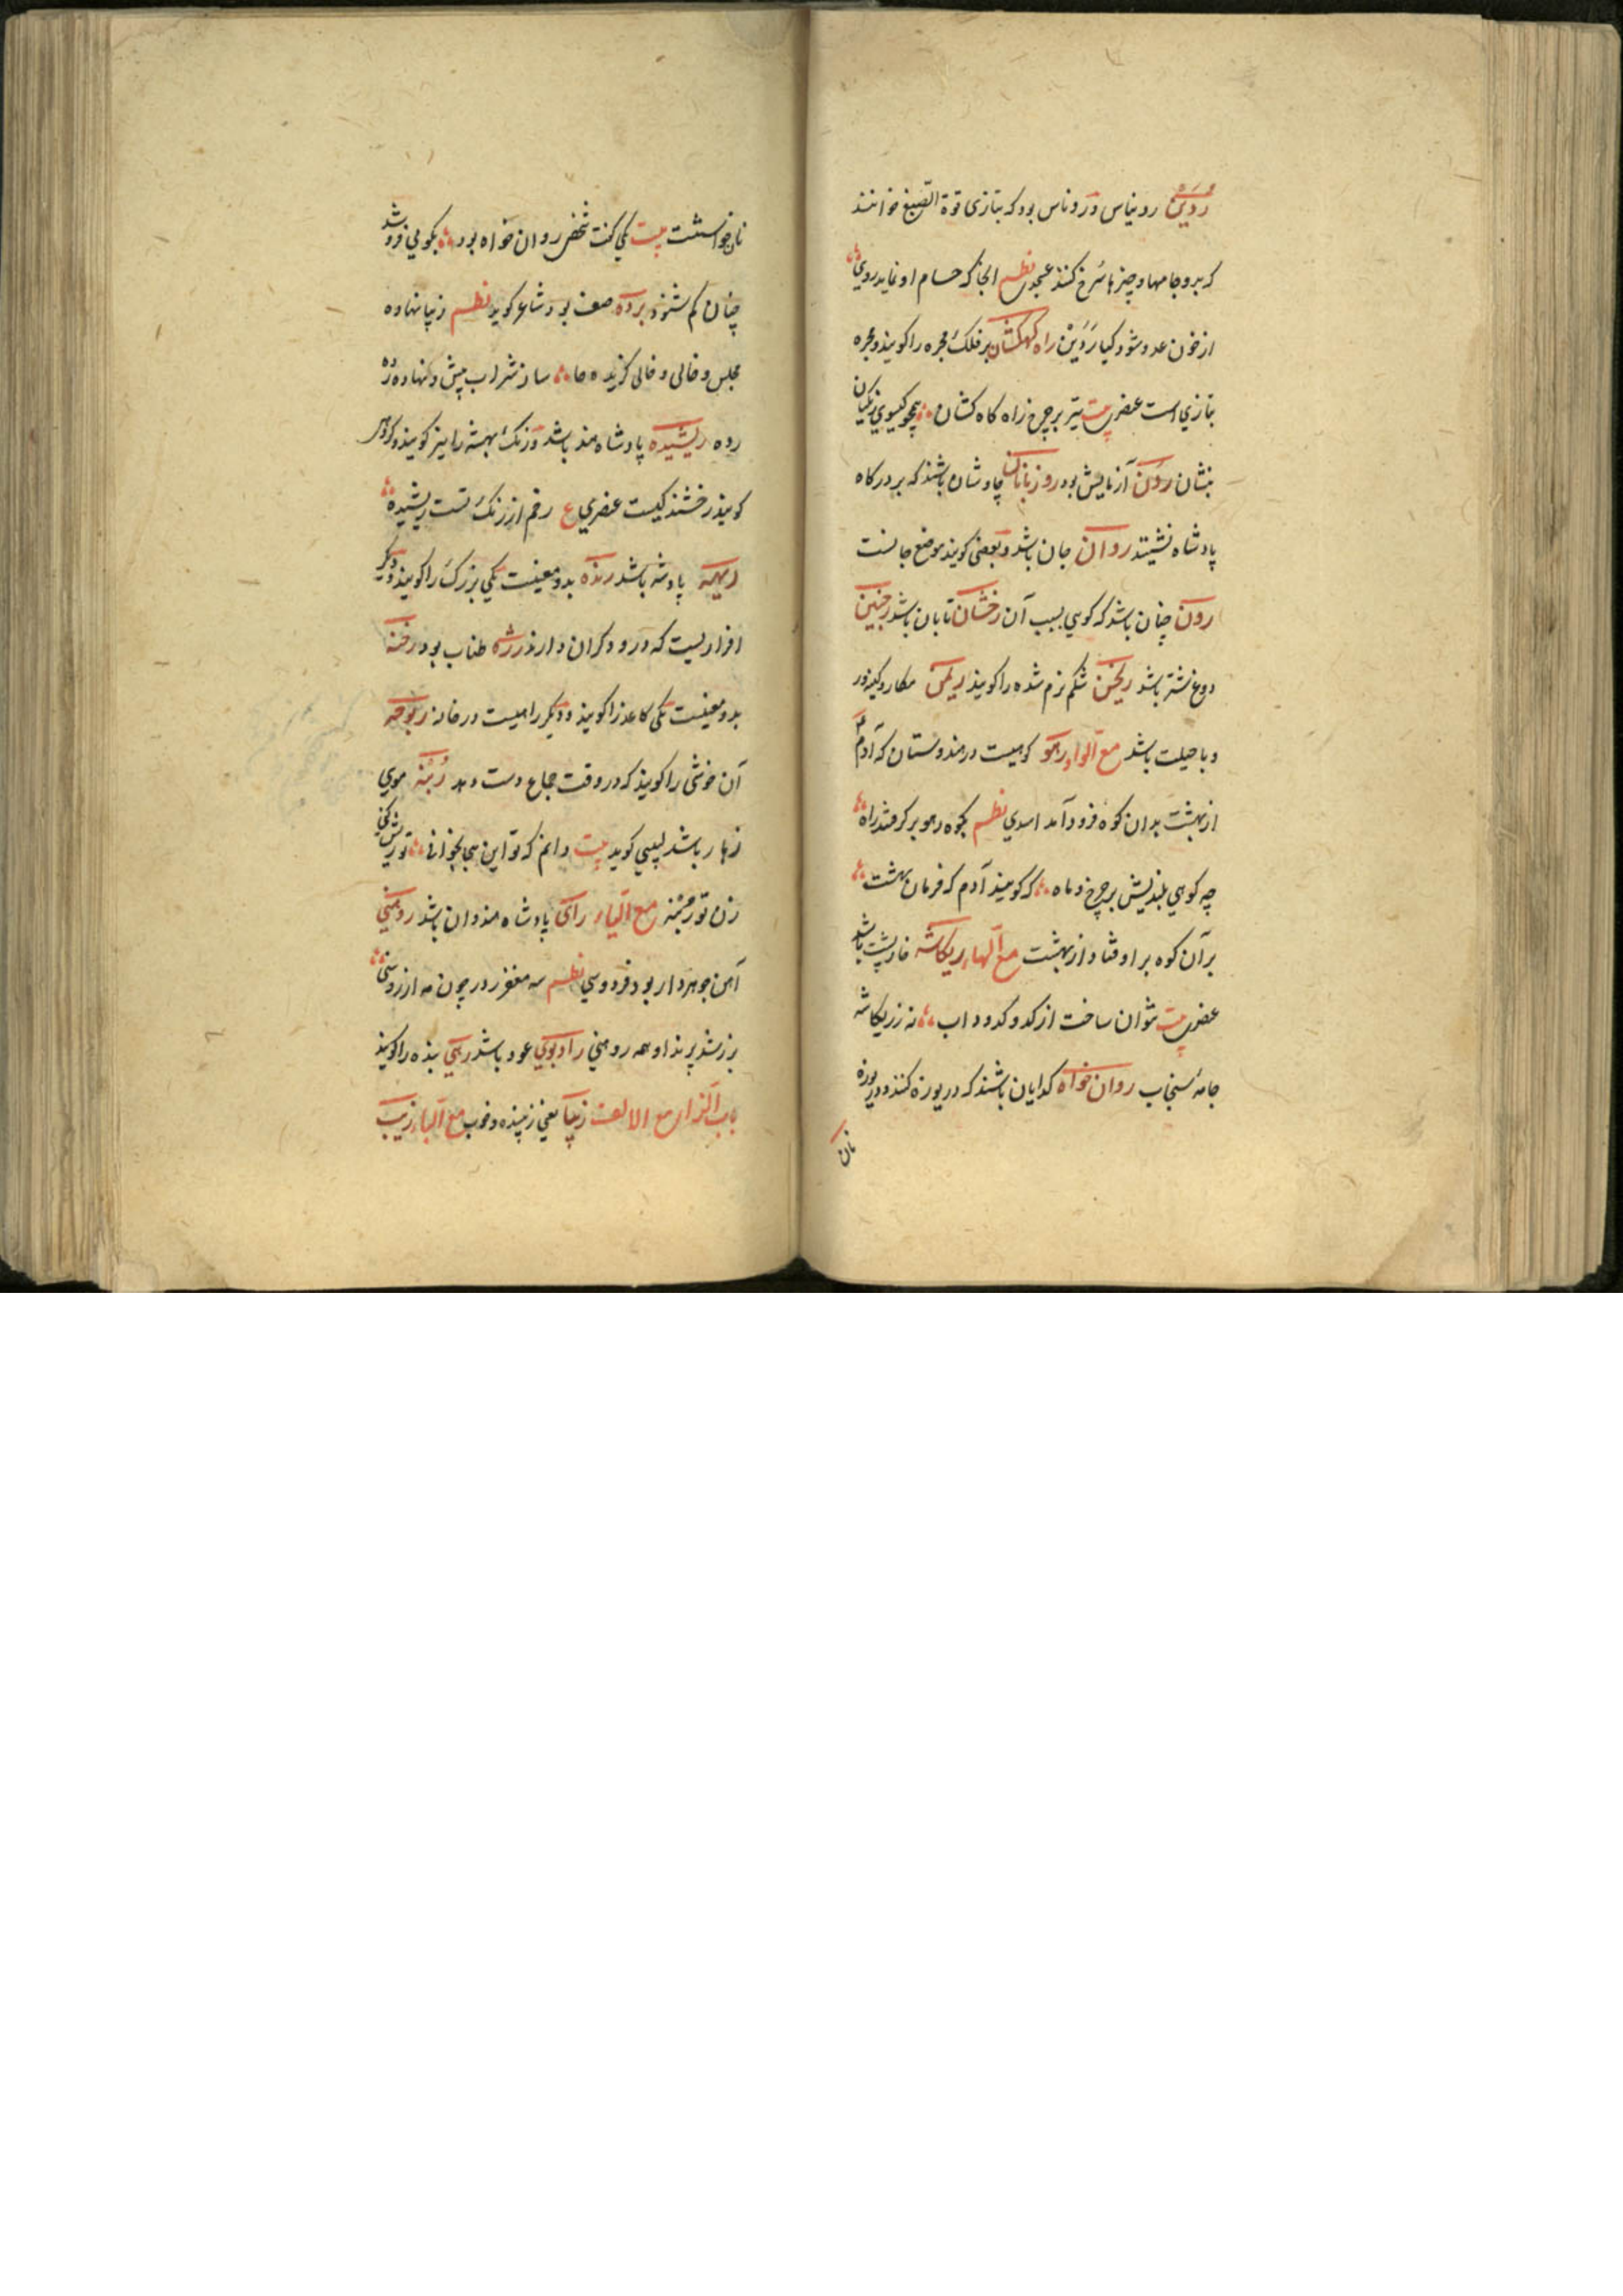 رویَن رونیاس و روناس بود که بتازی قوة الصبغ خوانند
که بدو جامها و چیزها سرخ کنند عسجدی نظم انجا که حسام او نماید روی
از خون عدو شود کیا رَوَیْن راه کهکشان بر فلک مجره را کویند و مجره
بتازی است عنصری بیت تیر بر چرخ راه کاه کشان همچو کیسوی زنکیان
بنشان رَوَن آزمایش بود روزبانان چاوشان باشند که بر درکاه
پادشاه نشینند روان جان باشد و بعضی کویند موضع جانست
رون چنان باشد که کویی بسبب آن رخشان تابان باشد رخبین
دوغ باشد ریخن شکم نرم شده را کویند ریمن مکار و کینه ور
و با حیلت باشد مع الواو رهو کوهیست در هندوستان که آدم
از بهشت بدان کوه فرود آمد اسدی نظم بکوه رهو برکرفتند راه
چه کوهی بلندیش بر چرخ و ماه که کویند آدم که فرمان بهشت
بر آن کوه بر اوفتاد از بهشت مع الهاء ریکاشه خارپشت باشد
عنصری بیت نتوان ساخت از کدو کدو داب نه ز ریکاشه
جامهٔ سنجاب روان خواه کدایان باشند که دریوزه کنند و دریوزه
نان
نان خواستست بیت یکی کفت شخص روان خواه بود بکویی فرو شد
چنان کم شنود برده صف بود شاعر کوید نظم زیبا نهاده
مجلس و خالی کزیده جا ساز شراب پیش و نهاده رده
رده ریشیده پادشاه هند باشد و زنک بهسته را نیز کویند و کروهی
کویند رخشنده کیست عنصری ع رخم از زنک تست ریشیده
ریهه پادشه باشد رنده بدو معنیست یکی بزرک را کویند و دیکر
افزاریست که درودکران دارند رژه طناب بود رخنه
بدو معنیست یکی کاغذ را کویند و دیکر راهیست در خانه ربوخه
آن خوشی را کویند که در وقت جماع دست دهد رُمنه موی
زهار باشد لبیبی کوید بیت دانم که تو این همی بخوانی تو ریش کنی
زن تو رمنه مع الیاء رای پادشاه هندوان باشد روهنی
آهن جوهردار بود فردوسی نظم سه مغفر زر چون مه از روشنی
بزر شد پرند او همه روهنی رادبوی عود باشد رهی بنده را کویند
باب الزاء مع الالف زیبا یعنی زیبنده و خوب مع الباء زیب